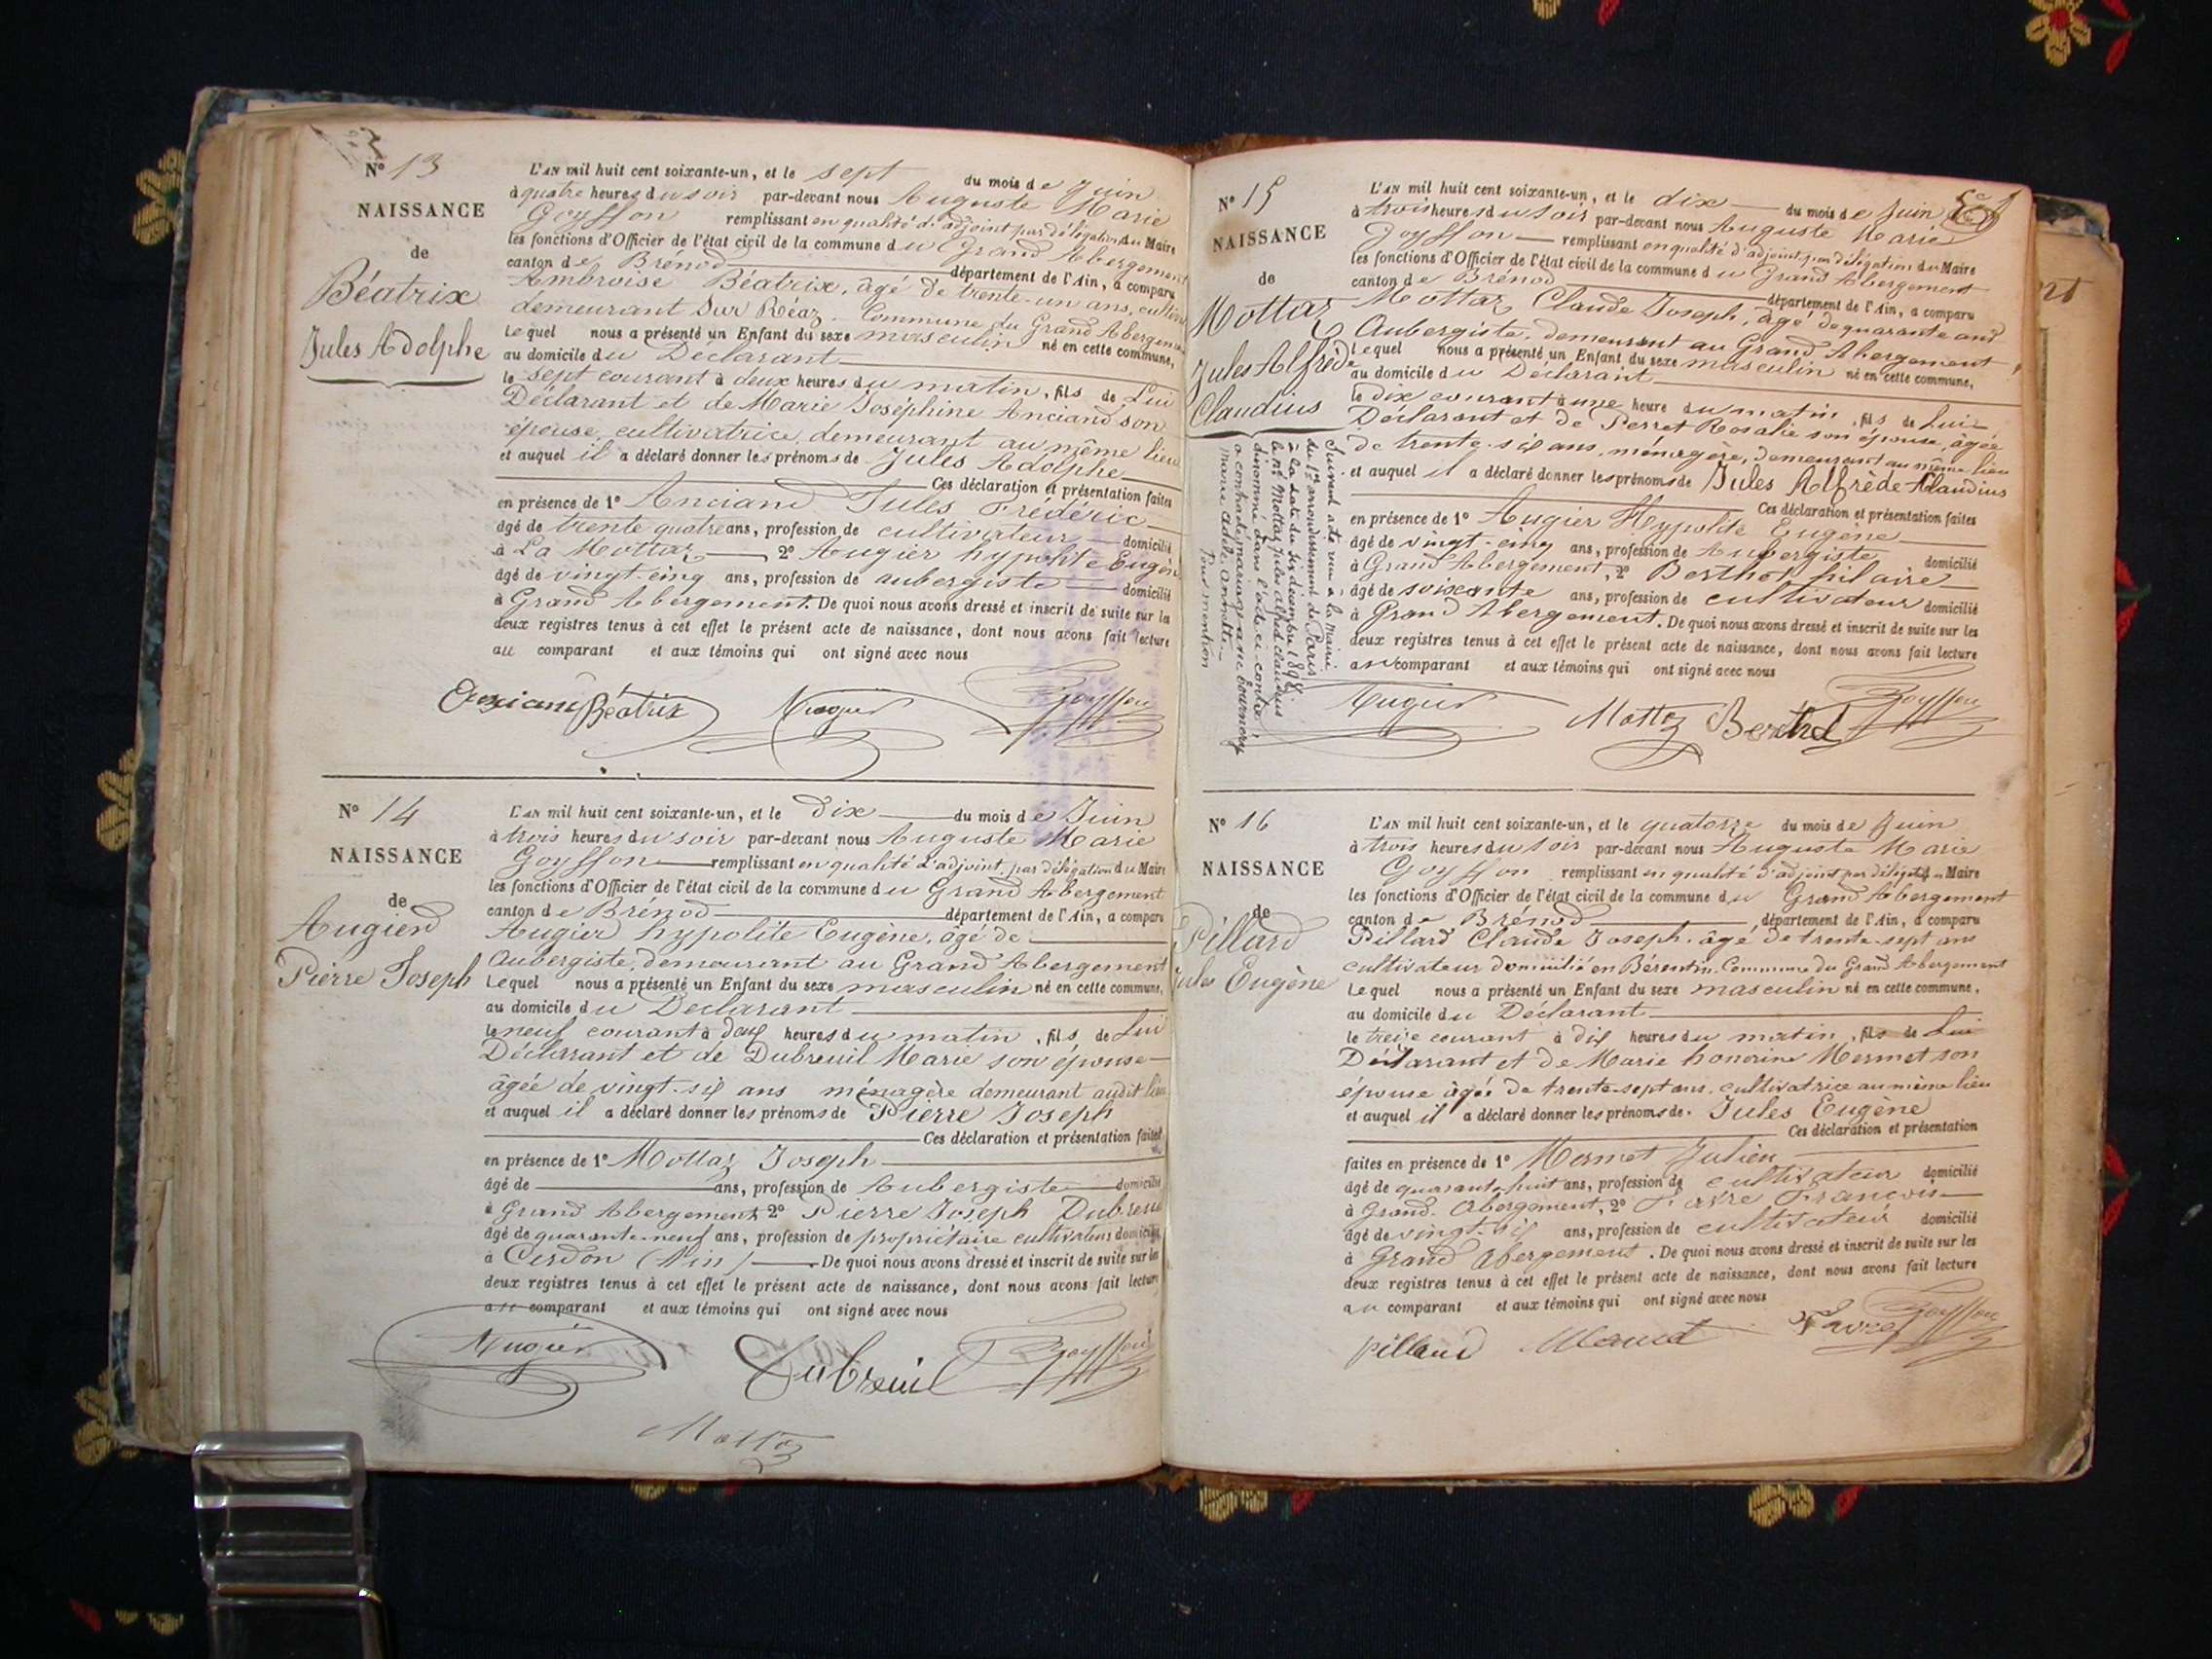 N° 13
NAISSANCE
de
Béatrix
Jules Adolphe
L'AN mil huit cent soixante-un, et le sept du mois de Juin
à quatre heures du soir par-devant nous Auguste Marie
Goyffon remplissant en qualité d'adjoint par délégation du Maire
les fonctions d'Officier de l'état civil de la commune du Grand Abergement
canton de Brénod département de l'Ain, a comparu
Ambroise Béatrix, âgé de trente-un ans,
demeurant Sur Réaz Commune du Grand Abergement
Lequel nous a présenté un Enfant du sexe masculin né en cette commune,
au domicile du Déclarant
le sept courant à deux heures du matin, fils de Lui
Déclarant et de Marie Joséphine Anciand son
épouse cultivatrice, demeurant au même lieu
et auquel il a déclaré donner les prénoms de Jules Adolphe
Ces déclaration et présentation faites
en présence de 1° Anciand Jules Frédéric
âgé de trente quatre ans, profession de cultivateur domicilié
à La Mottaz 2° Augier hypolite Eugène
âgé de vingt-cinq ans, profession de aubergiste domicilié
à Grand Abergement. De quoi nous avons dressé et inscrit de suite sur les
deux registres tenus à cet effet le présent acte de naissance, dont nous avons fait lecture
au comparant et aux témoins qui ont signé avec nous
Anciand Béatrix Augier Goyffon
N° 14
NAISSANCE
de
Augierd
Pierre Joseph
L'AN mil huit cent soixante-un, et le dix du mois de Juin
à trois heures du soir par-devant nous Auguste Marie
Goyffon remplissant en qualité d'adjoint, par délégation du Maire
les fonctions d'Officier de l'état civil de la commune du Grand Abergement
canton de Brénod département de l'Ain, a comparu
Augierd hypolite Eugène, âgé de
Aubergiste, demeurant au Grand Abergement
Lequel nous a présenté un Enfant du sexe masculin né en cette commune,
au domicile du Declarant
le neuf courant à deux heures du matin, fils de Lui
Déclarant et de Dubreuil Marie son épouse
âgée de vingt-six ans ménagère demeurant audit lieu
et auquel il a déclaré donner les prénoms de Pierre Joseph
Ces déclaration et présentation faites
en présence de 1° Mottaz Joseph
âgé de ans, profession de Aubergiste domicilié
à Grand Abergement 2° Pierre Joseph Dubreuil
âgé de quarante-neuf ans, profession de propriétaire cultivateur domicilié
à Cerdon (Ain) De quoi nous avons dressé et inscrit de suite sur les
deux registres tenus à cet effet le présent acte de naissance, dont nous avons fait lecture
au comparant et aux témoins qui ont signé avec nous
Augier Dubreuil Goyffon
Mottaz
N° 15
NAISSANCE
de
Mottaz
Jules Alfrède
Claudius
Suivant acte reçu à la Mairie
du arrondissement de Paris
à la date du six décembre
le Mottaz Jules Alfred claudius
dénommé dans l'acte ci-contre,
a contracté mariage avec
marie adèle
Pour mention
L'AN mil huit cent soixante-un, et le dix du mois de Juin
à trois heures du soir par-devant nous Auguste Marie
Goyffon remplissant en qualité d'adjoint par délégation du Maire
les fonctions d'Officier de l'état civil de la commune du Grand Abergement
canton de Brénod département de l'Ain, a comparu
Mottaz Claude Joseph, âgé de quarante ans
Aubergiste, demeurant au Grand Abergement
Lequel nous a présenté un Enfant du sexe masculin né en cette commune,
au domicile du Déclarant
le dix courant à une heure du matin, fils de Lui
Déclarant et de Perret Rosalie son épouse, âgée
de trente-six ans, ménagère, demeurant au même lieu
et auquel il a déclaré donner les prénoms de Jules Alfrède Claudius
Ces déclaration et présentation faites
en présence de 1° Augier Hypolite Eugène
âgé de vingt-cinq ans, profession de Aubergiste domicilié
à Grand Abergement, 2° Berthet hilaire
âgé de soixante ans, profession de cultivateur domicilié
à Grand Abergement. De quoi nous avons dressé et inscrit de suite sur les
deux registres tenus à cet effet le présent acte de naissance, dont nous avons fait lecture
au comparant et aux témoins qui ont signé avec nous
Augier Mottaz Berthet Goyffon
N° 16
NAISSANCE
de
Pillard
Jules Eugène
L'AN mil huit cent soixante-un, et le quatorze du mois de Juin
à trois heures du soir par-devant nous Auguste Marie
Goyffon remplissant en qualité d'adjoint par délégation du Maire
les fonctions d'Officier de l'état civil de la commune du Grand Abergement
canton de Brénod département de l'Ain, a comparu
Pillard Claude Joseph, âgé de trente-sept ans
cultivateur domicilié en Bérentin, Commune du Grand Abergement
Lequel nous a présenté un Enfant du sexe masculin né en cette commune,
au domicile du Déclarant
le treize courant à dix heures du matin, fils de Lui
Déclarant et de Marie honorine Mermet son
épouse âgée de trente-sept ans, cultivatrice au même lieu
et auquel il a déclaré donner les prénoms de Jules Eugène
Ces déclaration et présentation
faites en présence de 1° Mermet Julien
âgé de quarante huit ans, profession de cultivateur domicilié
à Grand Abergement, 2° Favre François
âgé de vingt-six ans, profession de cultivateur domicilié
à Grand Abergement. De quoi nous avons dressé et inscrit de suite sur les
deux registres tenus à cet effet le présent acte de naissance, dont nous avons fait lecture
au comparant et aux témoins qui ont signé avec nous
pillard Mermet Favre Goyffon